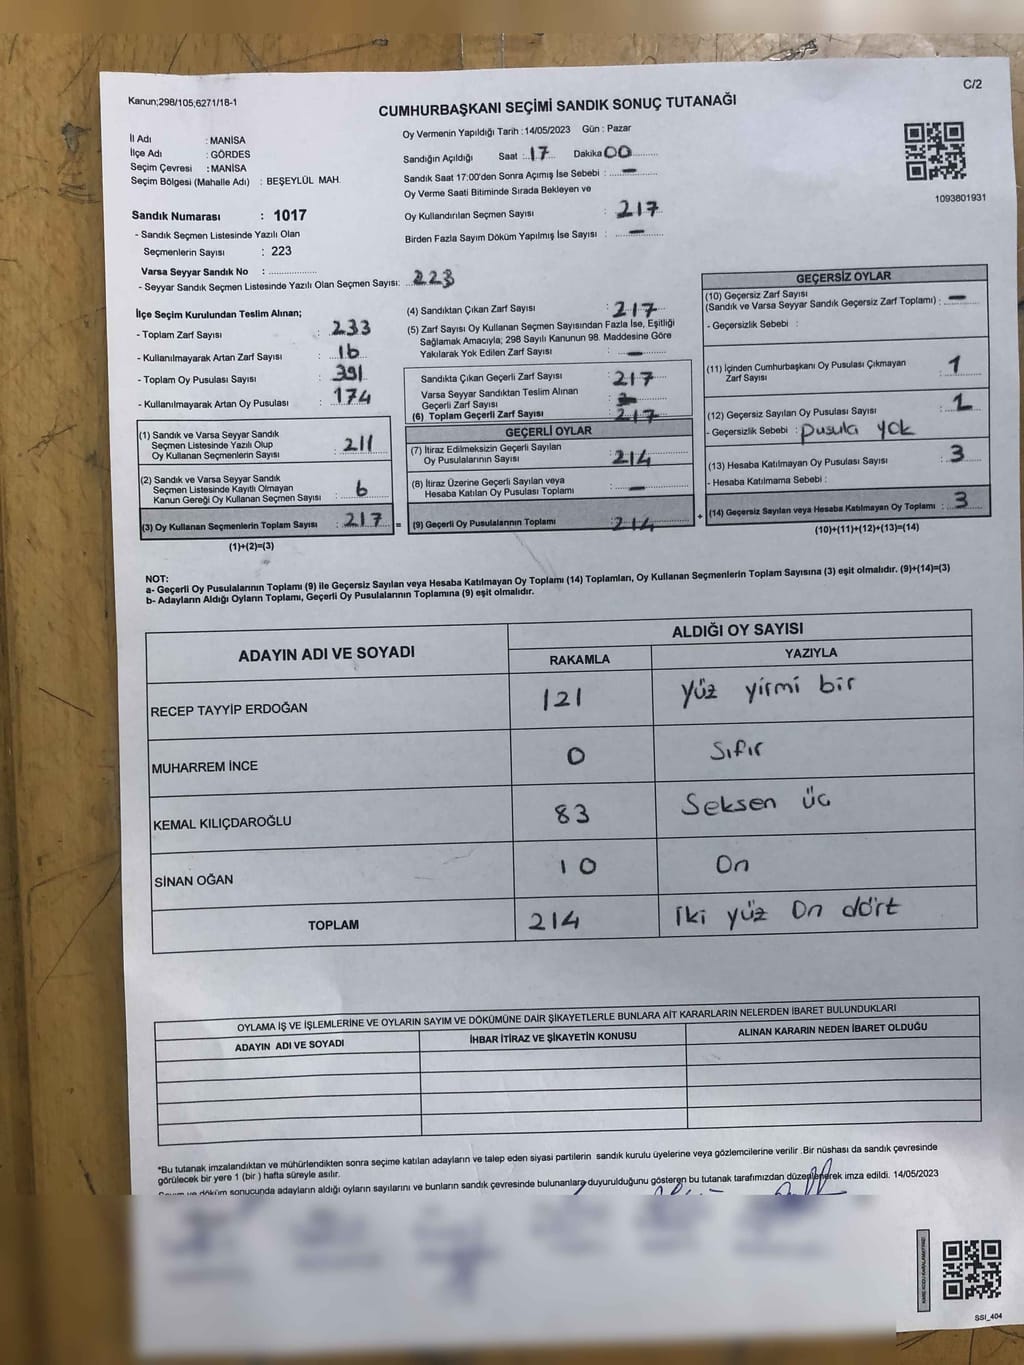 Kanun;298/105;6271/18-1
C/2
CUMHURBAŞKANI SEÇİMİ SANDIK SONUÇ TUTANAĞI
İl Adı : MANİSA
İlçe Adı : GÖRDES
Seçim Çevresi : MANİSA
Seçim Bölgesi (Mahalle Adı) : BEŞEYLÜL MAH.
Oy Vermenin Yapıldığı Tarih : 14/05/2023 Gün : Pazar
Sandığın Açıldığı Saat : 17 Dakika 00
Sandık Saat 17:00'den Sonra Açımış İse Sebebi : —
Oy Verme Saati Bitiminde Sırada Bekleyen ve
Oy Kullandırılan Seçmen Sayısı : 217
Birden Fazla Sayım Döküm Yapılmış İse Sayısı : —
1093801931
Sandık Numarası : 1017
- Sandık Seçmen Listesinde Yazılı Olan
Seçmenlerin Sayısı : 223
Varsa Seyyar Sandık No : ................
- Seyyar Sandık Seçmen Listesinde Yazılı Olan Seçmen Sayısı: 223
İlçe Seçim Kurulundan Teslim Alınan;
- Toplam Zarf Sayısı : 233
- Kullanılmayarak Artan Zarf Sayısı : 16
- Toplam Oy Pusulası Sayısı : 391
- Kullanılmayarak Artan Oy Pusulası : 174
(1) Sandık ve Varsa Seyyar Sandık
Seçmen Listesinde Yazılı Olup
Oy Kullanan Seçmenlerin Sayısı : 211
(2) Sandık ve Varsa Seyyar Sandık
Seçmen Listesinde Kayıtlı Olmayan
Kanun Gereği Oy Kullanan Seçmen Sayısı : 6
(3) Oy Kullanan Seçmenlerin Toplam Sayısı : 217 =
(1)+(2)=(3)
(4) Sandıktan Çıkan Zarf Sayısı : 217
(5) Zarf Sayısı Oy Kullanan Seçmen Sayısından Fazla İse, Eşitliği
Sağlamak Amacıyla; 298 Sayılı Kanunun 98. Maddesine Göre
Yakılarak Yok Edilen Zarf Sayısı : —
Sandıkta Çıkan Geçerli Zarf Sayısı : 217
Varsa Seyyar Sandıktan Teslim Alınan
Geçerli Zarf Sayısı :
(6) Toplam Geçerli Zarf Sayısı : 217
GEÇERLİ OYLAR
(7) İtiraz Edilmeksizin Geçerli Sayılan
Oy Pusulalarının Sayısı : 214
(8) İtiraz Üzerine Geçerli Sayılan veya
Hesaba Katılan Oy Pusulası Toplamı : —
(9) Geçerli Oy Pusulalarının Toplamı : 214 +
GEÇERSİZ OYLAR
(10) Geçersiz Zarf Sayısı
(Sandık ve Varsa Seyyar Sandık Geçersiz Zarf Toplamı) : —
- Geçersizlik Sebebi :
(11) İçinden Cumhurbaşkanı Oy Pusulası Çıkmayan
Zarf Sayısı : 1
(12) Geçersiz Sayılan Oy Pusulası Sayısı :
- Geçersizlik Sebebi : pusula yok
(13) Hesaba Katılmayan Oy Pusulası Sayısı : 3
- Hesaba Katılmama Sebebi :
(14) Geçersiz Sayılan veya Hesaba Katılmayan Oy Toplamı : 3
(10)+(11)+(12)+(13)=(14)
NOT:
a- Geçerli Oy Pusulalarının Toplamı (9) ile Geçersiz Sayılan veya Hesaba Katılmayan Oy Toplamı (14) Toplamları, Oy Kullanan Seçmenlerin Toplam Sayısına (3) eşit olmalıdır. (9)+(14)=(3)
b- Adayların Aldığı Oyların Toplamı, Geçerli Oy Pusulalarının Toplamına (9) eşit olmalıdır.
ADAYIN ADI VE SOYADI
ALDIĞI OY SAYISI
RAKAMLA YAZIYLA
RECEP TAYYİP ERDOĞAN 121 yüz yirmi bir
MUHARREM İNCE 0 Sıfır
KEMAL KILIÇDAROĞLU 83 Seksen üç
SİNAN OĞAN 10 On
TOPLAM 214 İki yüz On dört
OYLAMA İŞ VE İŞLEMLERİNE VE OYLARIN SAYIM VE DÖKÜMÜNE DAİR ŞİKAYETLERLE BUNLARA AİT KARARLARIN NELERDEN İBARET BULUNDUKLARI
ADAYIN ADI VE SOYADI İHBAR İTİRAZ VE ŞİKAYETİN KONUSU ALINAN KARARIN NEDEN İBARET OLDUĞU
*Bu tutanak imzalandıktan ve mühürlendikten sonra seçime katılan adayların ve talep eden siyasi partilerin sandık kurulu üyelerine veya gözlemcilerine verilir .Bir nüshası da sandık çevresinde
görülecek bir yere 1 (bir ) hafta süreyle asılır.
döküm sonucunda adayların aldığı oyların sayılarını ve bunların sandık çevresinde bulunanlara duyurulduğunu gösteren bu tutanak tarafımızdan düzenlenerek imza edildi. 14/05/2023
SSI_404